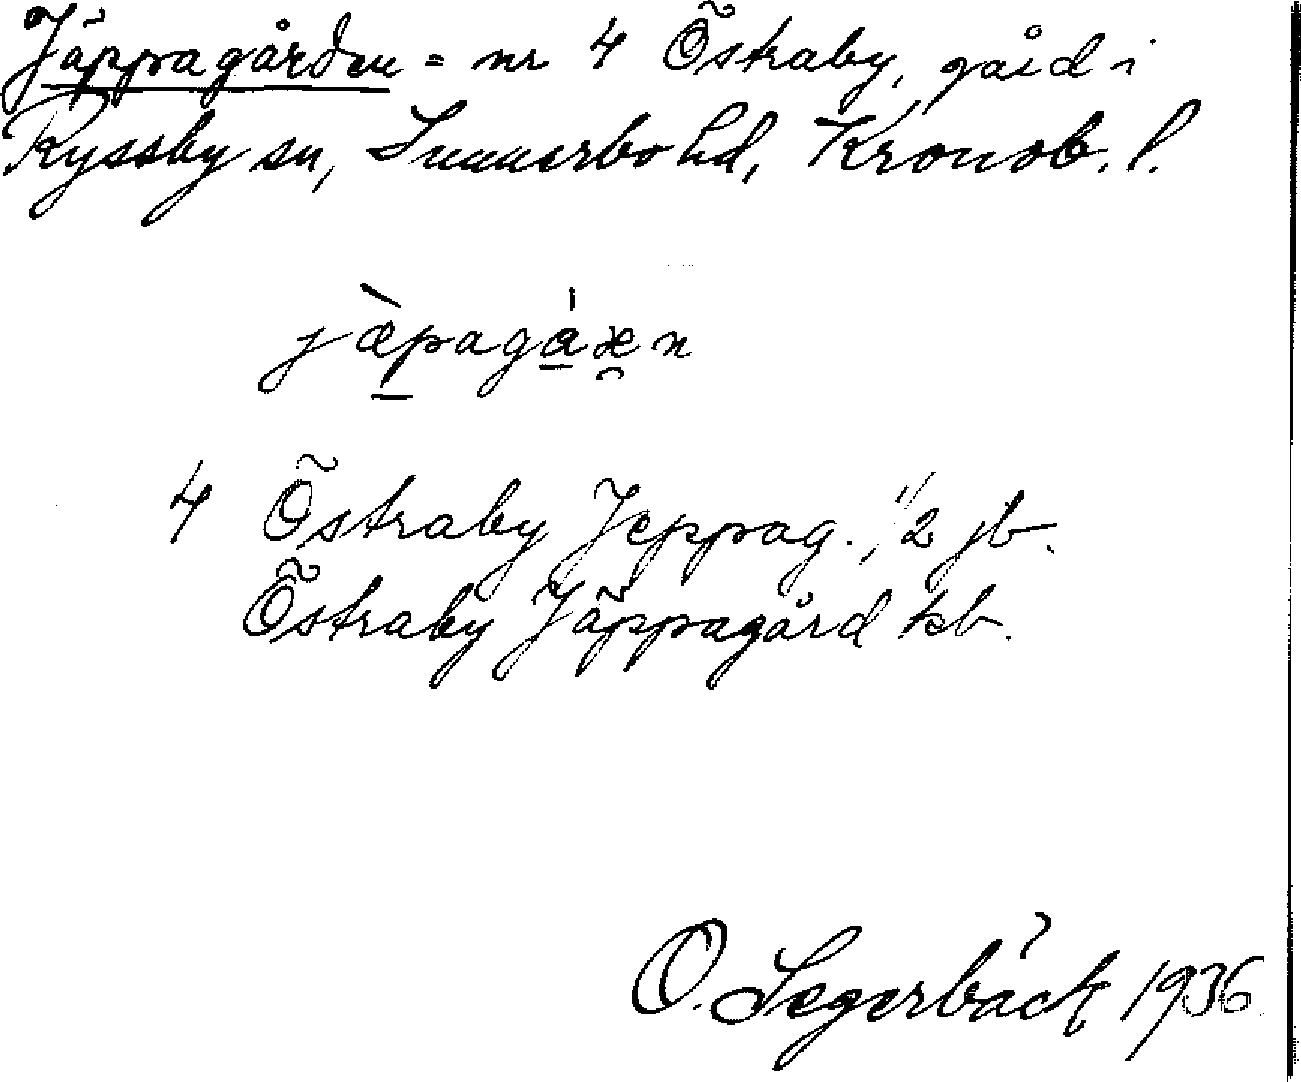 Jäppagården = nr 4 Östraby, gård i
Ryssby sn, Sunnerbo hd, Kronob. l.
jæ̀pagáæ̯n
4 Östraby Jeppag., 1/2 jb.
Östraby Jäppagård kb.
O. Segerbäck 1936.